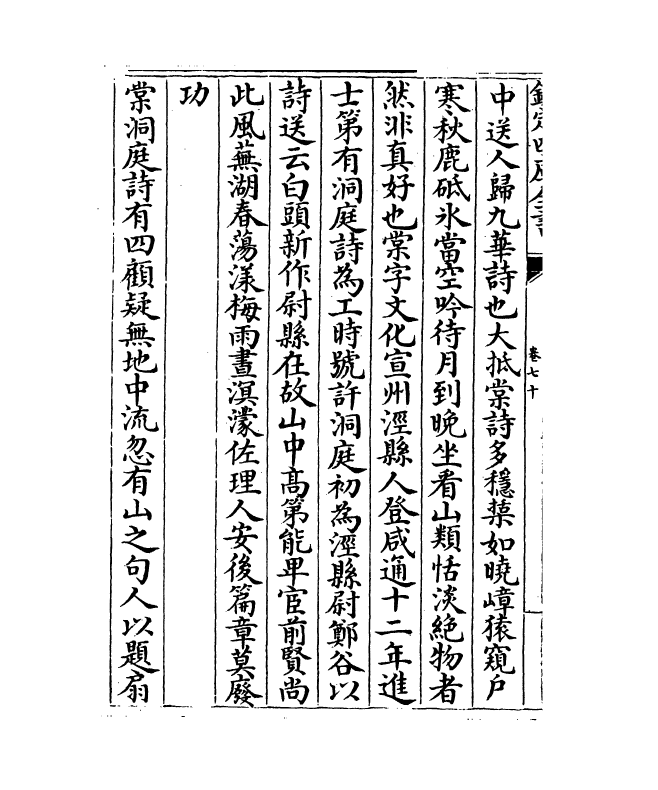 欽定四庫全書
卷七十
中送人歸九華詩也大抵棠詩多穩㯶如曉嶂猿窺戶
寒秋鹿砥氷當空吟待月到晚坐看山類恬淡絶物者
然非真好也棠字文化宣州涇縣人登咸通十二年進
士第有洞庭詩為工時號許洞庭初為涇縣尉鄭谷以
詩送云白頭新作尉縣在故山中髙第能卑宦前賢尚
此風蕪湖春蕩漾梅雨晝溟濛佐理人安後篇章莫廢
功
棠洞庭詩有四顧疑無地中流忽有山之句人以題扇